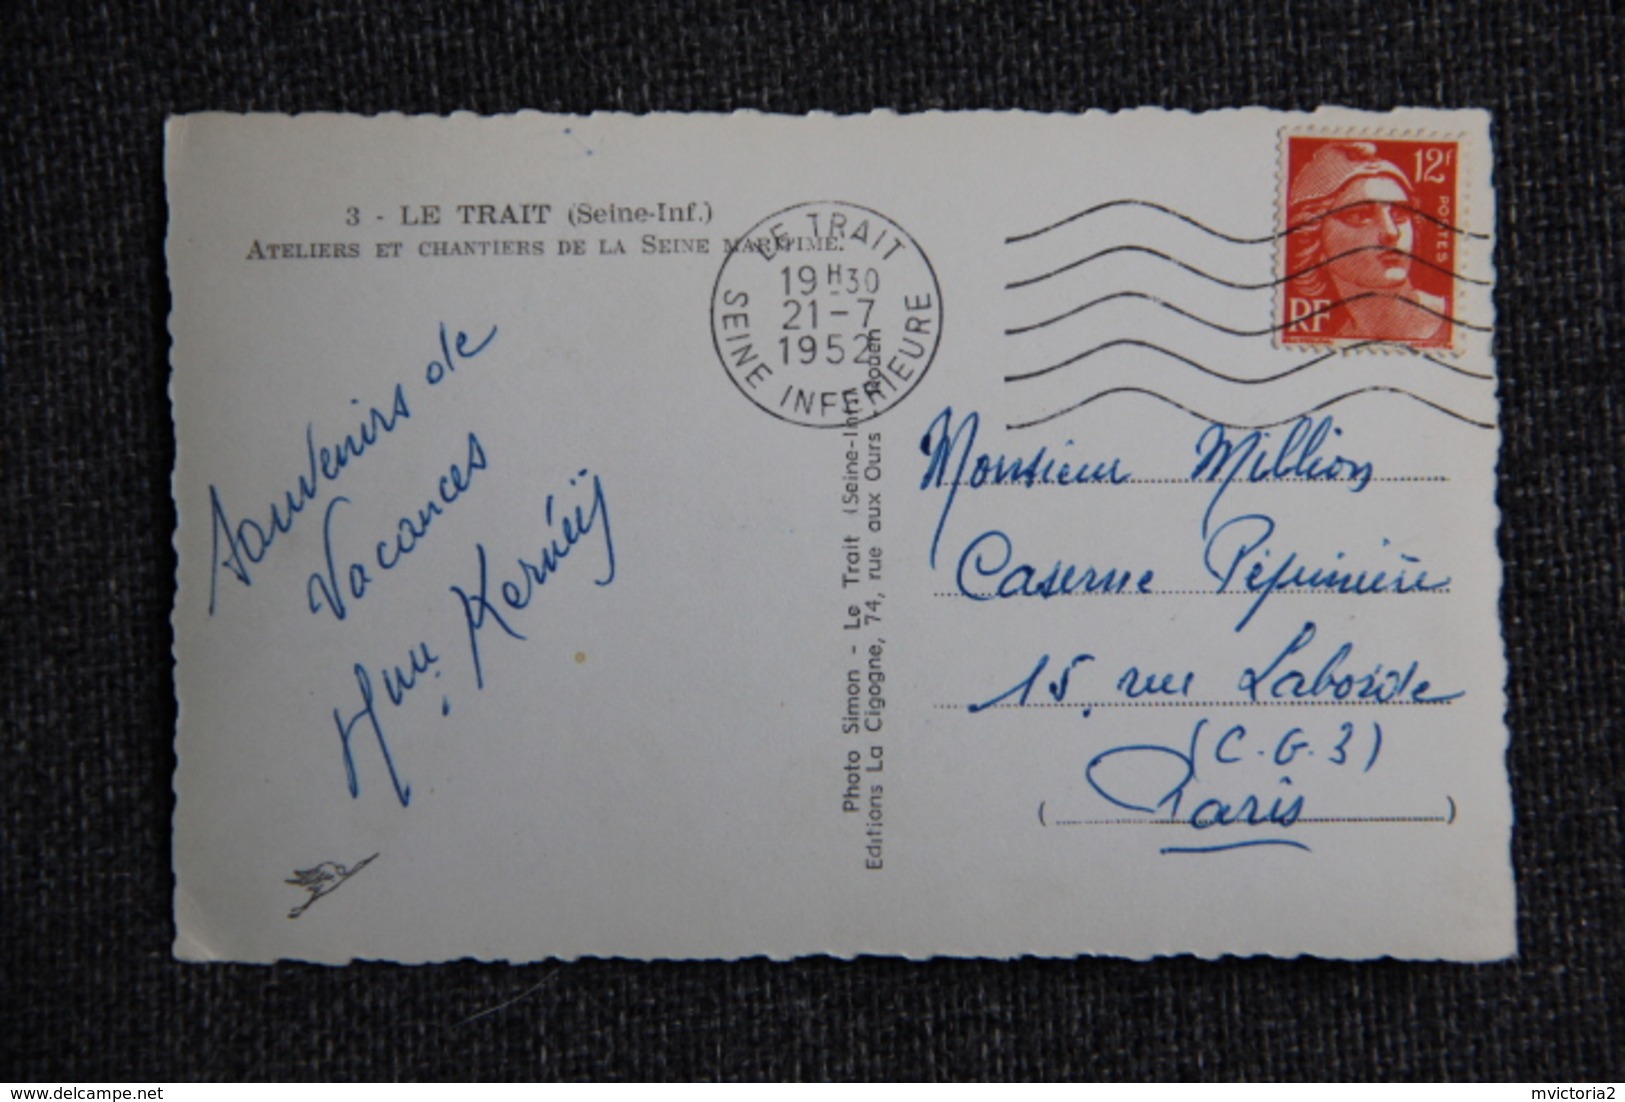 3 - LE TRAIT (Seine-Inf.)
ATELIERS ET CHANTIERS DE LA SEINE MARITIME.
LE TRAIT
19H30
21-7
1952
SEINE INFERIEURE
12f
POSTES
RF
Souvenirs de
Vacances
Kernéïs
Photo Simon - Le Trait (Seine-Inf.)
Editions La Cigogne, 74, rue aux Ours - Rouen
Monsieur Million
Caserne Pépinière
15, rue Laborde
(C.G.3)
(Paris)
delcampe.net
mvictoria2